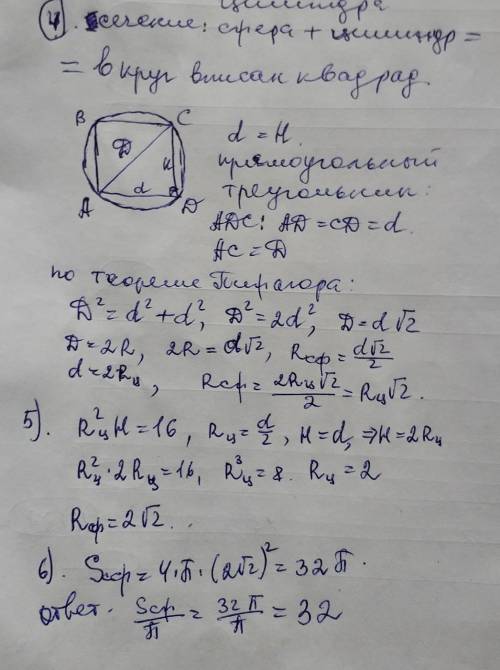 цилиндра
4. сечение: сфера + цилиндр =
= в круг вписан квадрад.
B C
D H
d
A D
d = H.
прямоугольный
треугольник:
ADC: AD = CD = d.
AC = D
по теореме Пифагора:
D² = d² + d², D² = 2d², D = d√2
D = 2R, 2R = d√2, Rсф = d√2/2
d = 2Rц, Rсф = 2Rц√2/2 = Rц√2.
5). R²ц H = 16, Rц = d/2, H = d, ⇒ H = 2Rц
R²ц · 2Rц = 16, R³ц = 8. Rц = 2
Rсф = 2√2.
6). Sсф = 4·π·(2√2)² = 32π.
ответ. Sсф/π = 32π/π = 32